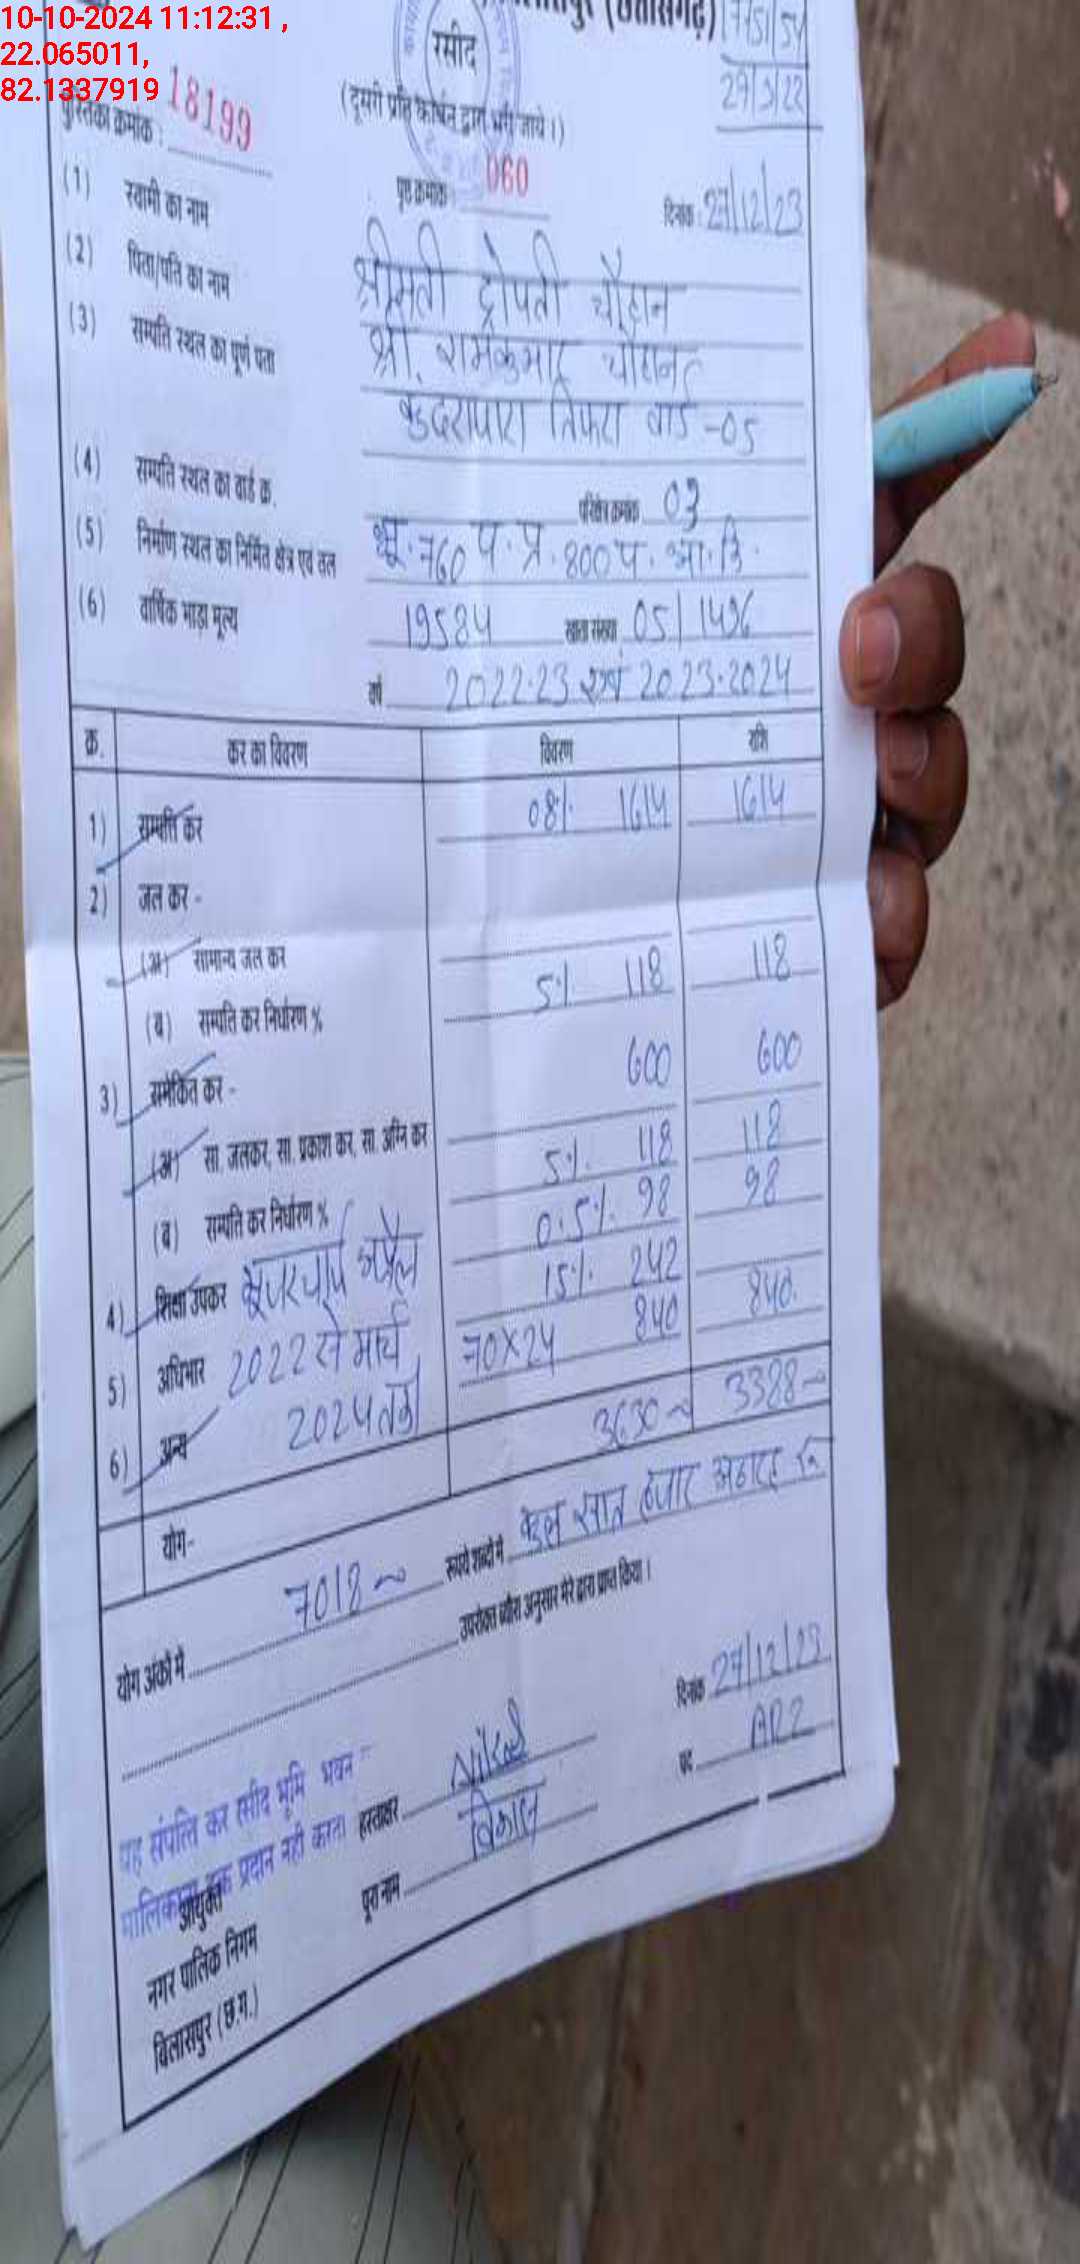 10-10-2024 11:12:31 ,
22.065011,
82.1337919
(छत्तीसगढ़)
रसीद
(दूसरी प्रति कार्यालय द्वारा भरी जाये ।)
पुस्तिका क्रमांक : 18199
पृष्ठ क्रमांक 060
दिनांक : 27/12/23
(1) स्वामी का नाम श्रीमती द्रोपती चौहान
(2) पिता/पति का नाम श्री. रामकुमार चौहान
(3) सम्पत्ति स्थल का पूर्ण पता कुदरापारा तिफरा वार्ड -05
(4) सम्पति स्थल का वार्ड क्र. परिक्षेत्र क्रमांक 03
(5) निर्माण स्थल का निर्मित क्षेत्र एवं तल भू. 760 प. प्र. 800 प. आ. नि.
(6) वार्षिक भाड़ा मूल्य 19584 खाता संख्या 05/1496
वर्ष 2022-23 एवं 2023-2024
क्र. कर का विवरण विवरण राशि
1) सम्पत्ति कर 08% 1614 1614
2) जल कर -
(अ) सामान्य जल कर
(ब) सम्पति कर निर्धारण % 5% 118 118
3) समेकित कर - 600 600
(अ) सा. जलकर, सा. प्रकाश कर, सा. अग्नि कर
(ब) सम्पति कर निर्धारण % 5% 118 118
4) शिक्षा उपकर 0.5% 98 98
5) अधिभार 15% 242
6) अन्य यूजर चार्ज अप्रैल 2022 से मार्च 2024 तक 70x24 840 840
योग- 3630 3388
योग अंको में 7018 रूपये शब्दों में कुल सात हजार अठारह रू
उपरोक्त ब्यौरा अनुसार मेरे द्वारा प्राप्त किया ।
दिनांक 27/12/23
पद ARI
यह संपत्ति कर रसीद भूमि भवन
मालिकाना हक प्रदान नही करता
हस्ताक्षर
पूरा नाम
आयुक्त
नगर पालिक निगम
बिलासपुर (छ.ग.)